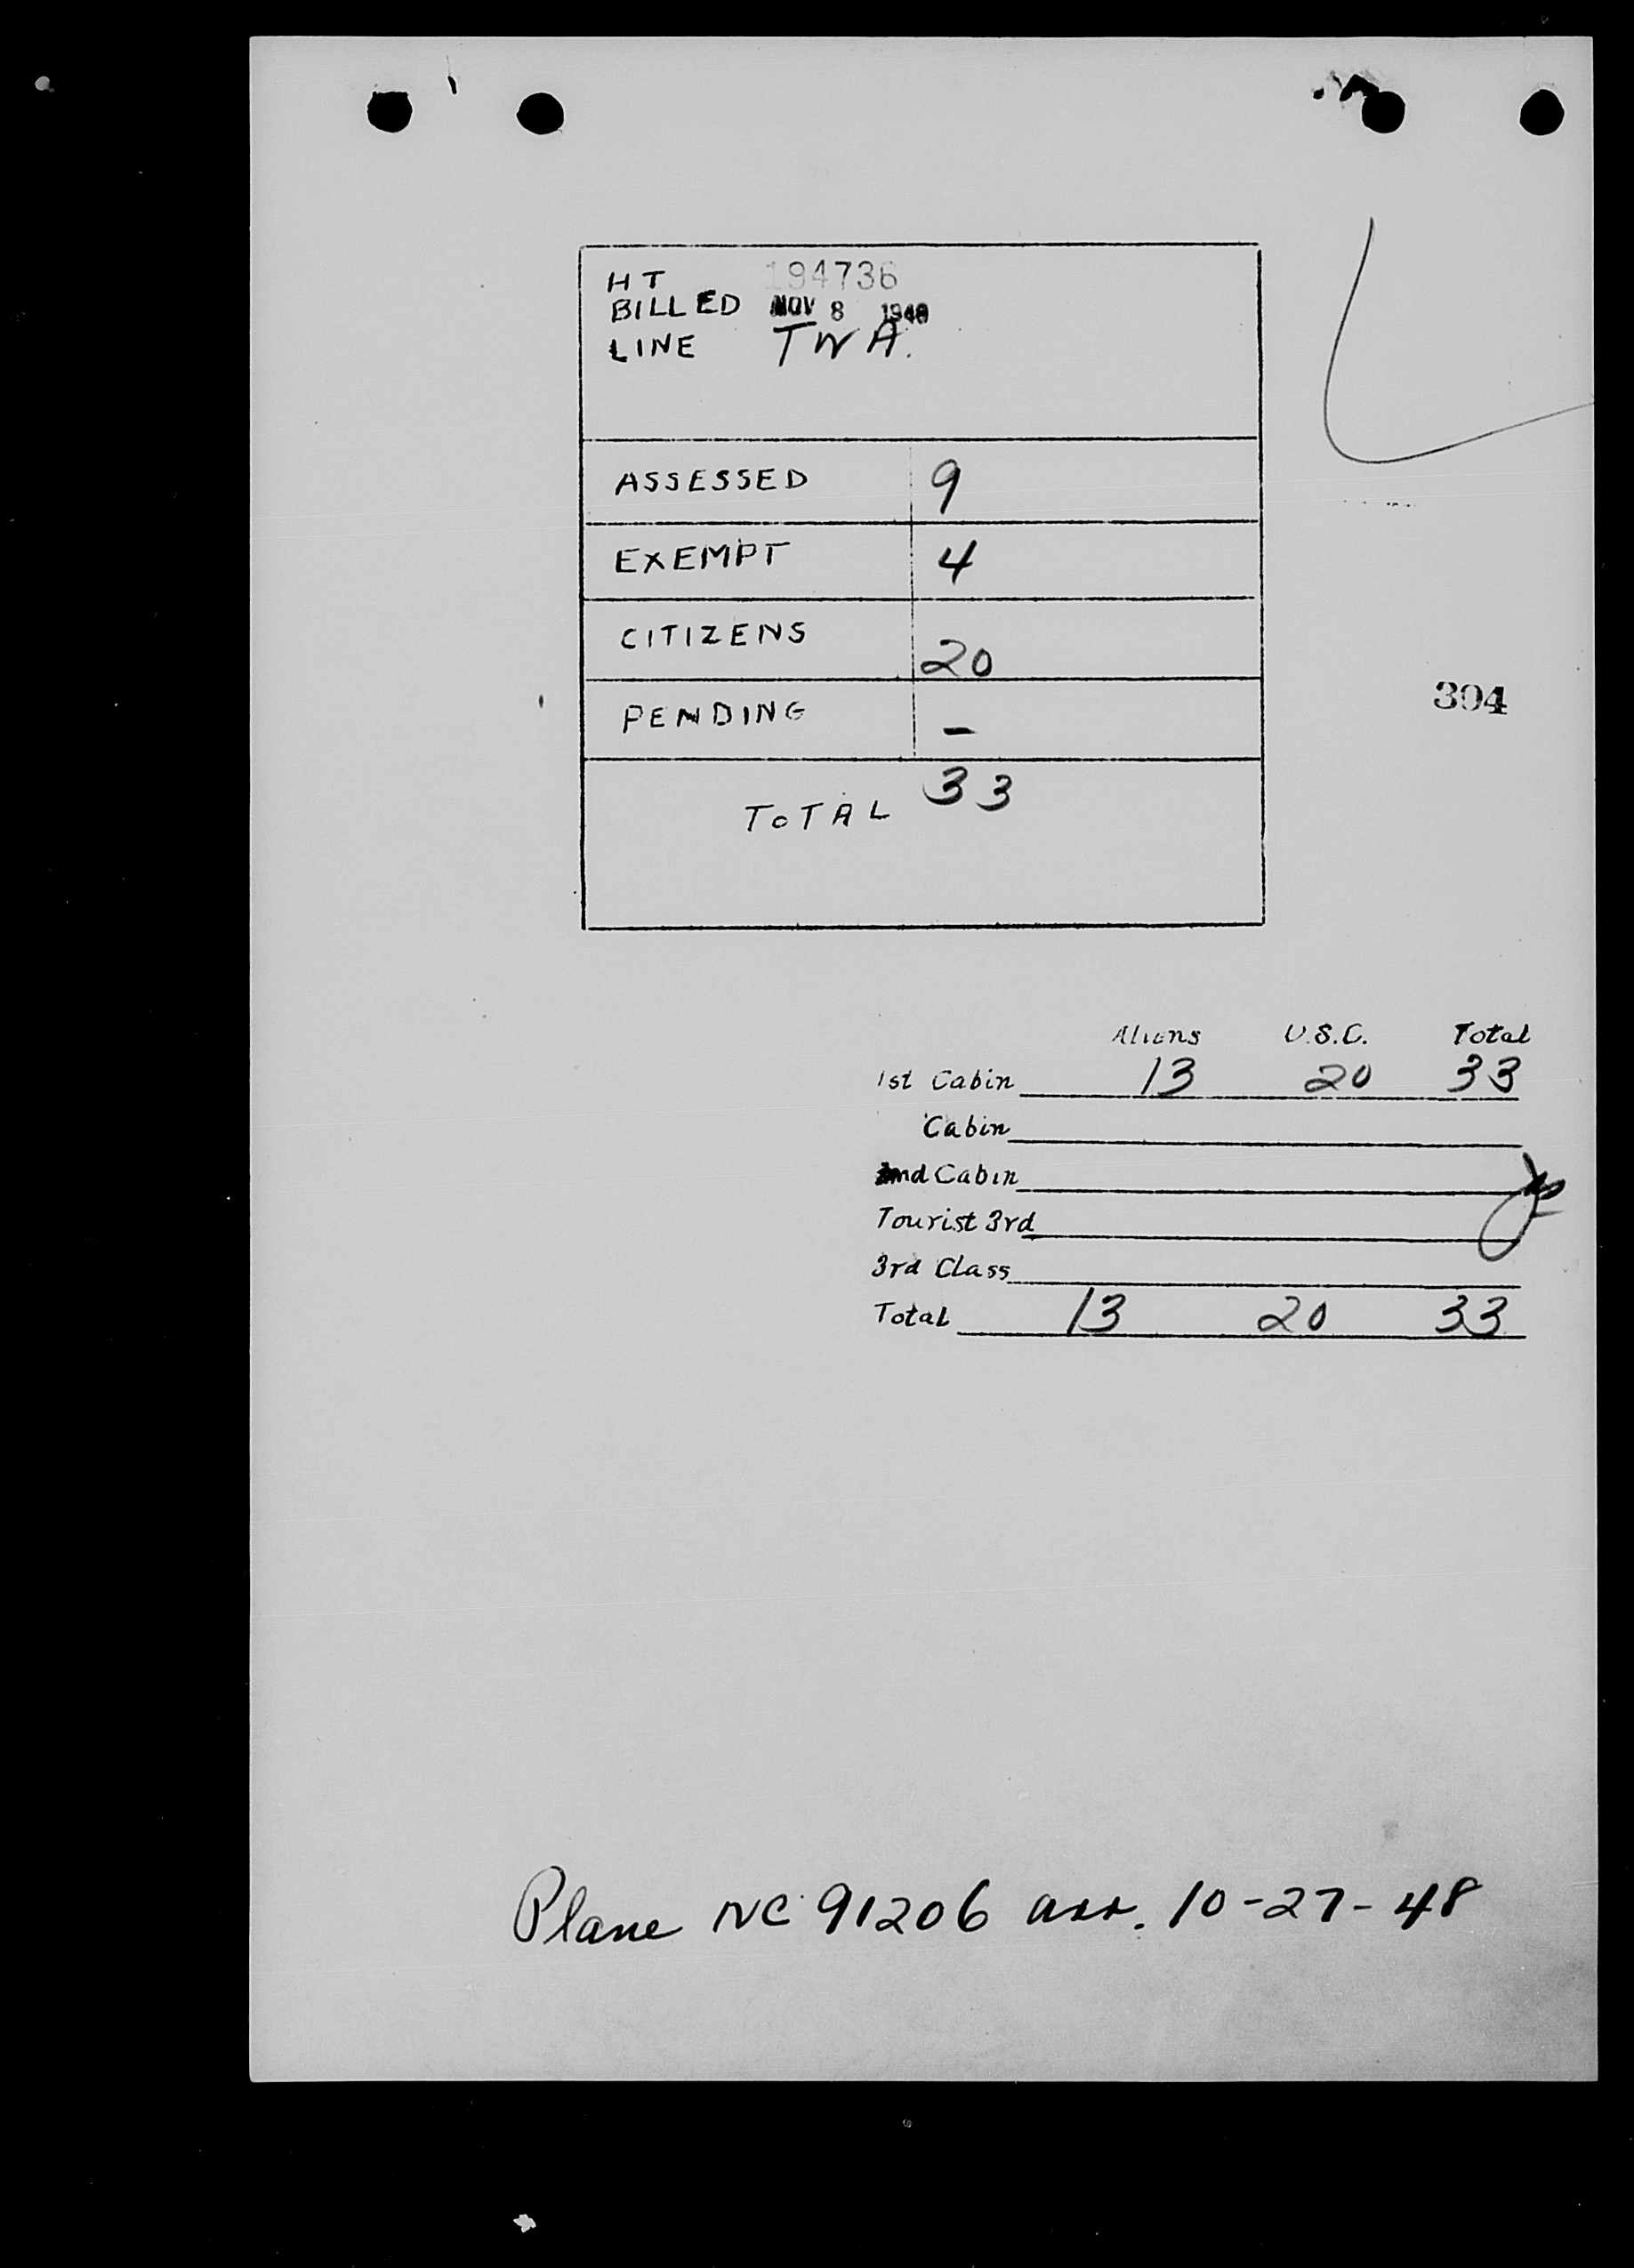 HT 194736
BILLED NOV 8 1948
LINE TWA.
ASSESSED 9
EXEMPT 4
CITIZENS 20
PENDING –
TOTAL 33
304
Aliens U.S.C. Total
1st Cabin 13 20 33
Cabin
2nd Cabin
Tourist 3rd
3rd Class
Total 13 20 33
Plane NC 91206 arr. 10-27-48